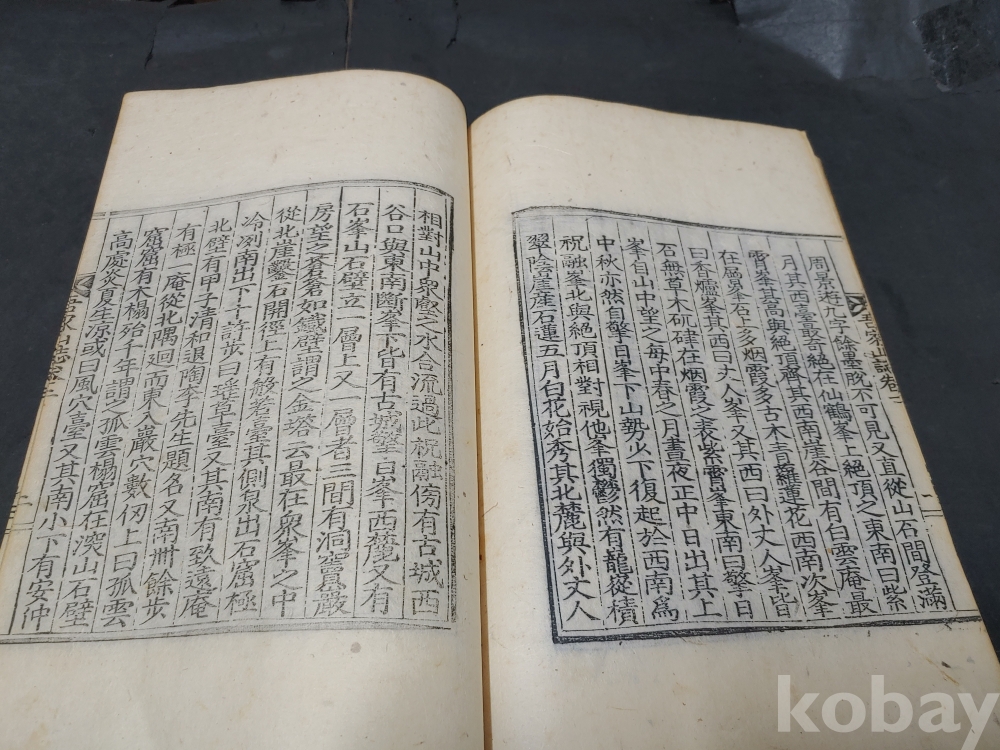 周景遊九字餘墨脫不可見又直從山石間登滿
月其西臺最奇絕在仙鶴峯上絕頂之東南曰紫
霄峯
其高與絕頂齊其西南崖谷間有白雲庵最
在
石上多烟霞多古木靑蘿蓮花西南次峯
曰香爐峯其西曰丈人峯又其西曰外丈人峯北
石無草木砑硉在烟霞之表紫霄峯東南曰擎日
峯自山中望之每中春之月晝夜正中日出其上
中秋亦然自擎日峯下山勢少下復起於西南爲
祝融峯北與絕頂相對視他峯獨鬱然有龍嵸積
翠陰崖産石蓮五月白花始秀其北麓與外丈人
吾家山誌卷二
一
相對山中衆壑之水合流過此祝融傍有古城西
谷口與東南斷峯下皆有古城擎日峯西麓又有
石峯山石壁立一層上又一層者三間有洞
房望之蒼蒼如鐵壁謂之金塔云最在衆峯之中
從北崖鑿石開徑上有
若臺其側泉出石窟極
冷冽南出下十許步曰瑤草臺又其南有致遠庵
北壁有甲子淸和退陶李先生題名又南卅餘步
有極一庵從北隅廻而東入巖穴數仞上曰孤雲
窟窟有木榻殆千年謂之孤雲榻窟在深山石壁
高處炎夏生凉或曰風穴臺又其南小下有安仲